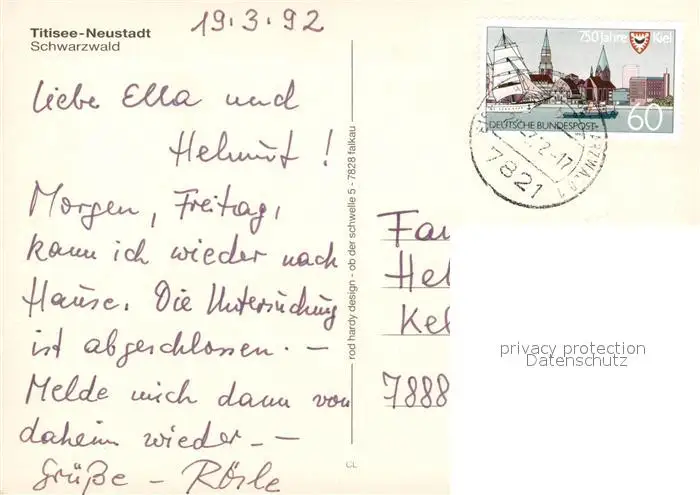 19.3.92
Titisee-Neustadt
Schwarzwald
Liebe Ella und
Helmut!
Morgen, Freitag,
kann ich wieder nach
Hause. Die Untersuchung
ist abgeschlossen. –
Melde mich dann von
daheim wieder. – –
Grüße – Rösle
rod hardy design - ob der schwelle 5 - 7828 falkau
CL
750 Jahre Kiel
DEUTSCHE BUNDESPOST
60
7821
Fam
Hel
Kel
7888
privacy protection
Datenschutz